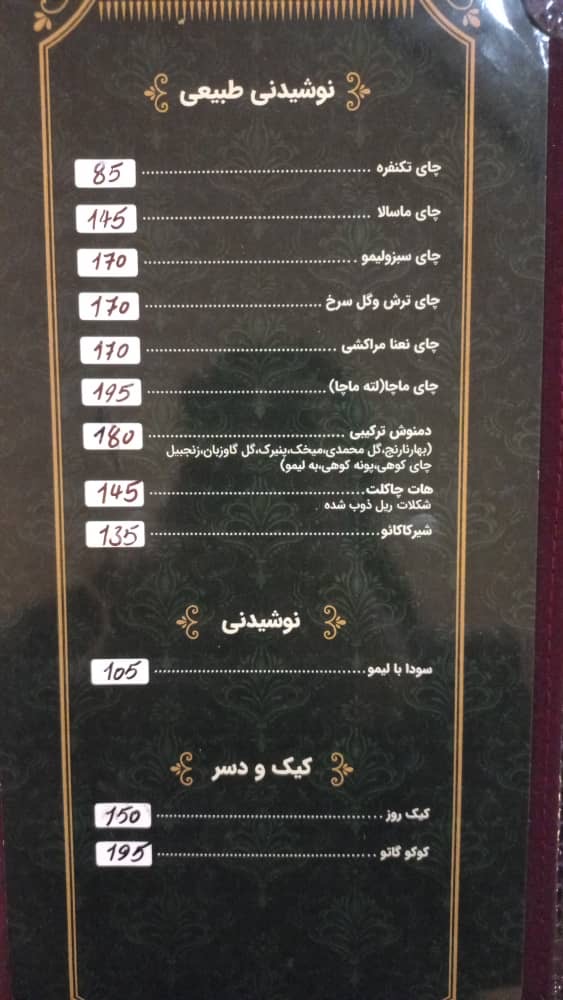 نوشیدنی طبیعی
چای تکنفره ........................ 85
چای ماسالا ........................ 145
چای سبزولیمو ........................ 170
چای ترش وگل سرخ ........................ 170
چای نعنا مراکشی ........................ 170
چای ماچا(لته ماچا) ........................ 195
دمنوش ترکیبی ........................ 180
(بهارنارنج،گل محمدی،میخک،پنیرک،گل گاوزبان،زنجبیل
چای کوهی،پونه کوهی،به لیمو)
هات چاکلت ........................ 145
شکلات ریل ذوب شده
شیرکاکائو ........................ 135
نوشیدنی
سودا با لیمو ........................ 105
کیک و دسر
کیک روز ........................ 150
کوکو گاتو ........................ 195